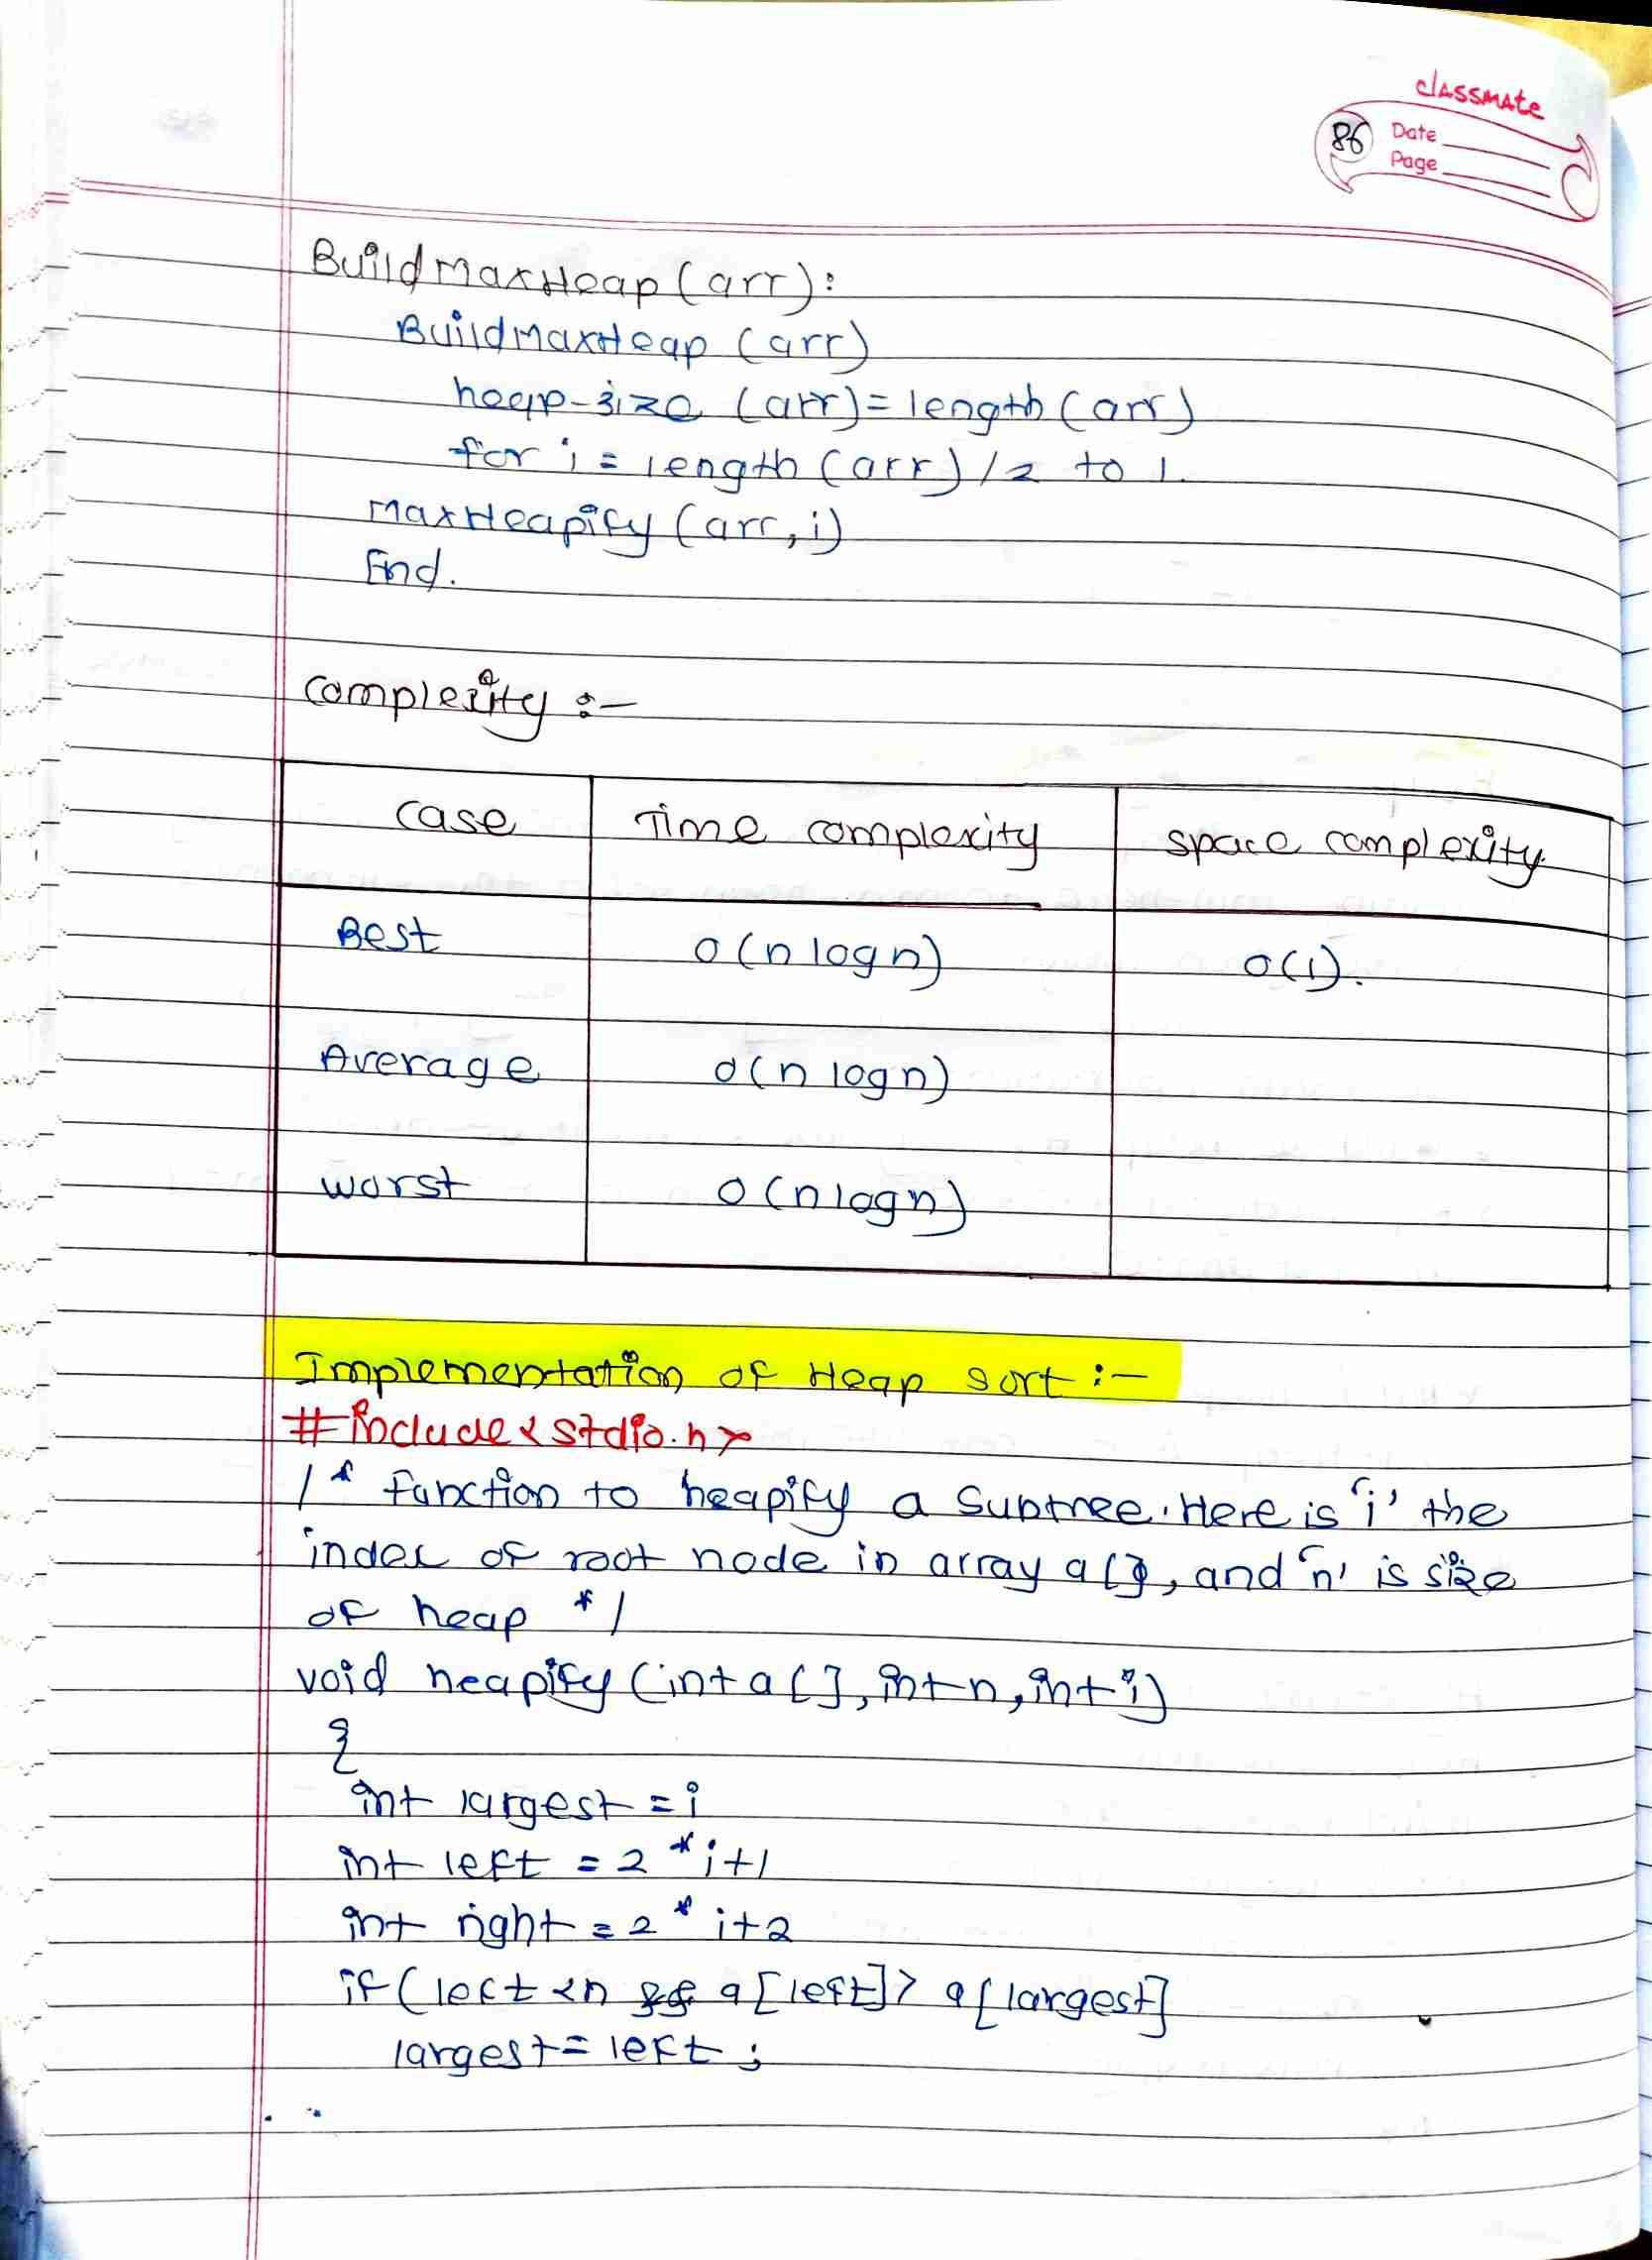 classmate
86 Date
Page
BuildMaxHeap (arr):
BuildMaxHeap (arr)
heap-size (arr) = length (arr)
for i = length (arr) /2 to 1.
MaxHeapify (arr, i)
End.
Complexity :-
Case Time complexity Space complexity.
Best O(n log n) O(1).
Average O(n log n)
Worst O(n log n)
Implementation of Heap sort :-
#include <stdio.h>
/* function to heapify a subtree. Here is 'i' the
index of root node in array a[], and 'n' is size
of heap */
void heapify (int a[], int n, int i)
{
int largest = i
int left = 2 * i+1
int right = 2 * i+2
if (left < n && a[left] > a[largest]
largest = left ;